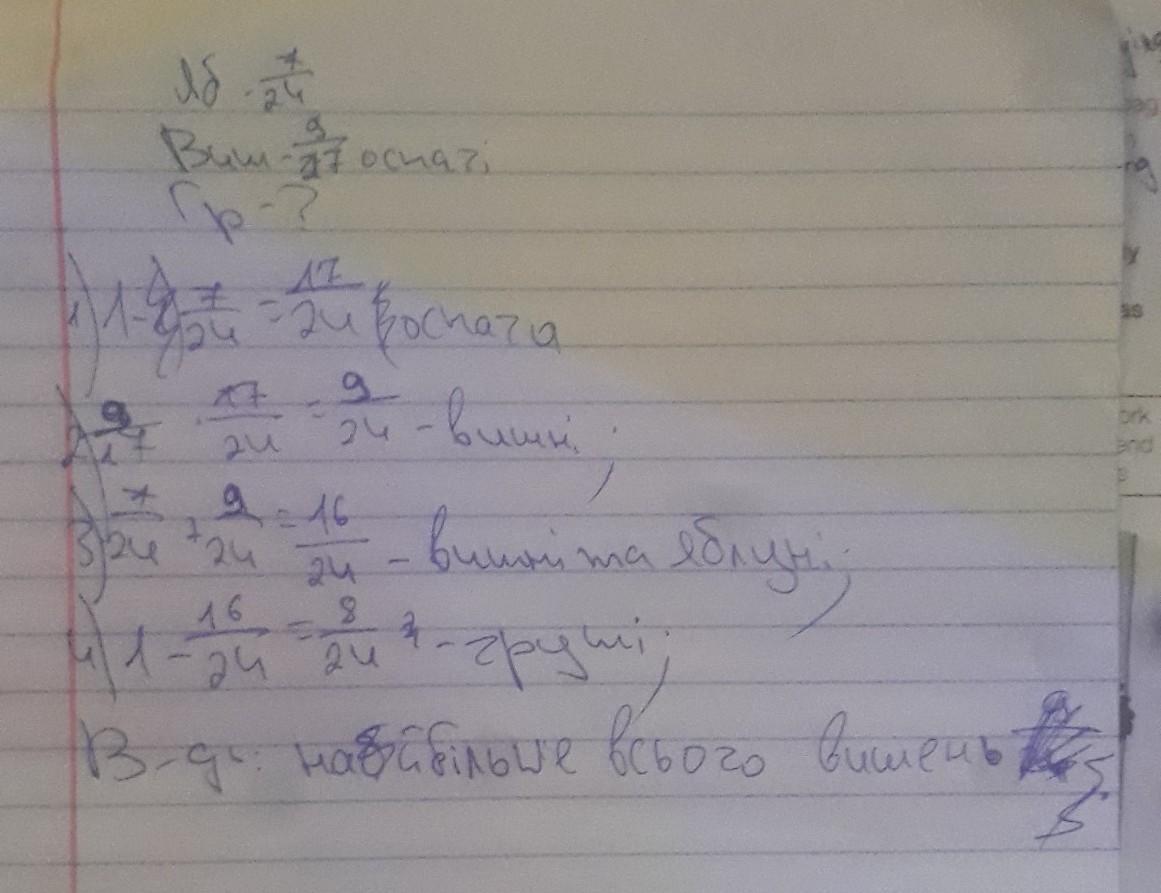 Яб - 7/24
Виш - 9/17 остачі
Гр - ?
1) 1 - 7/24 = 17/24 остача
2) 9/17 · 17/24 = 9/24 - вишні;
3) 7/24 + 9/24 = 16/24 - вишні та яблуні;
4) 1 - 16/24 = 8/24 - груші;
В-дь: найбільше всього вишень